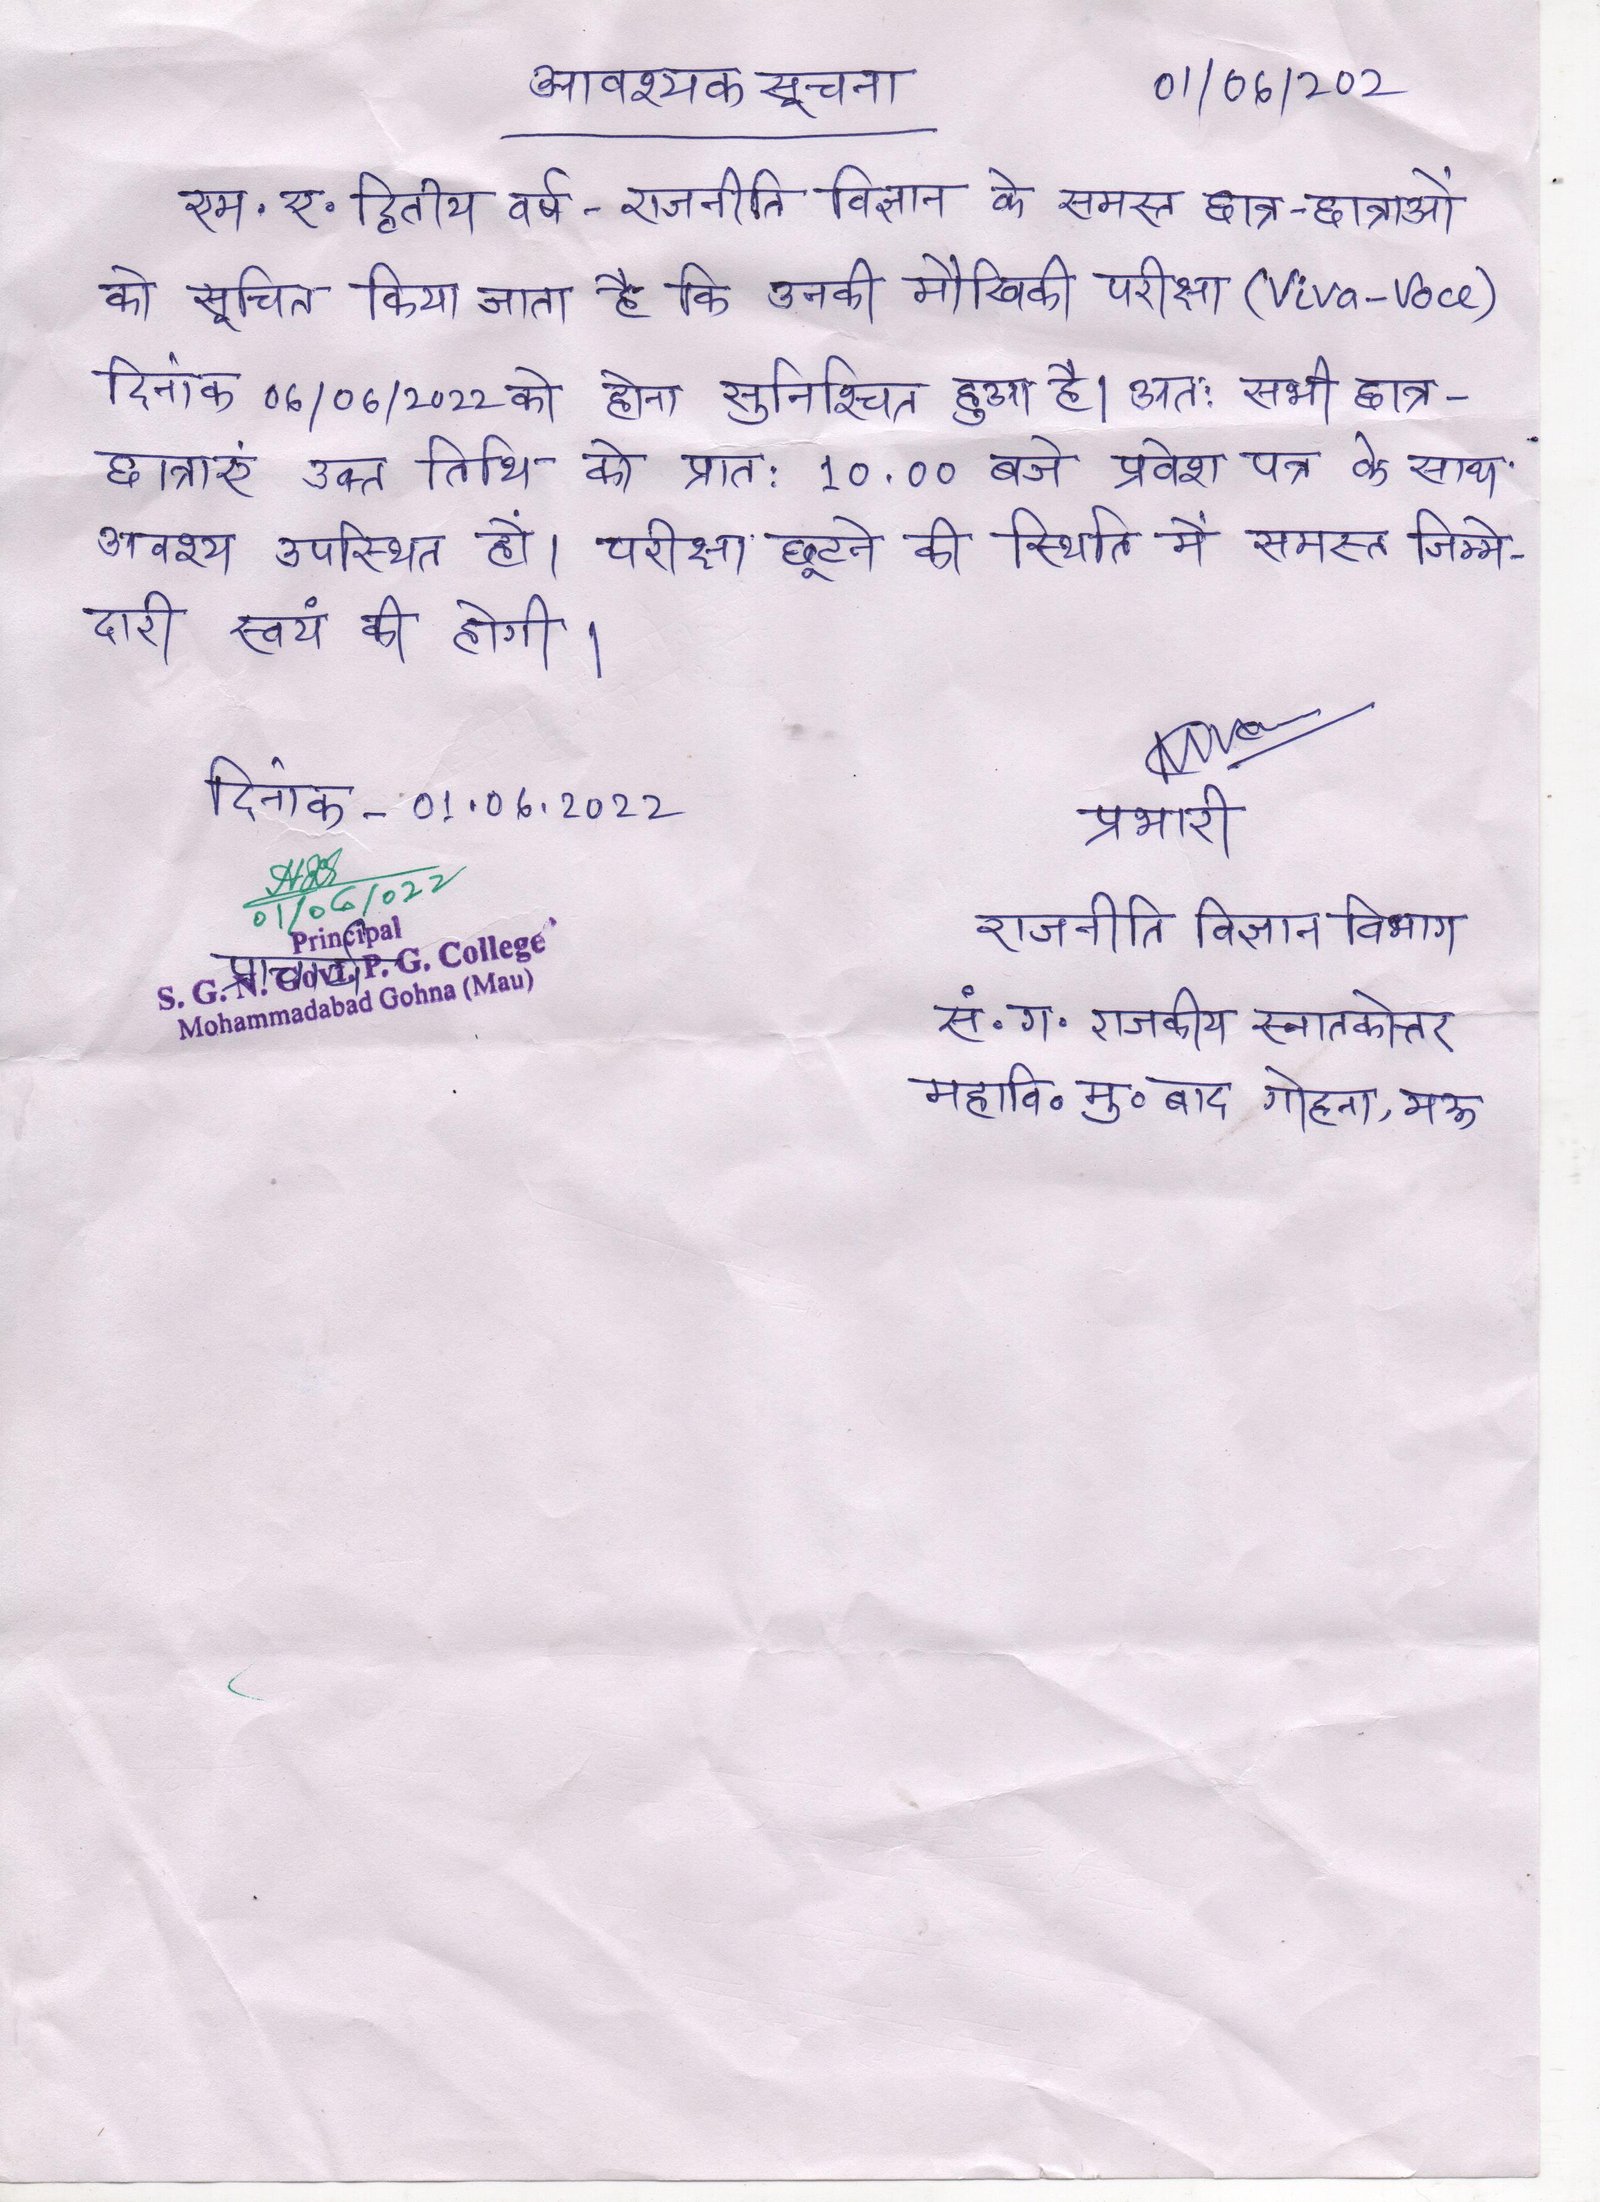 आवश्यक सूचना
01/06/202
एम. ए. द्वितीय वर्ष - राजनीति विज्ञान के समस्त छात्र-छात्राओं
को सूचित किया जाता है कि उनकी मौखिकी परीक्षा (Viva-Voce)
दिनांक 06/06/2022 को होना सुनिश्चित हुआ है। अतः सभी छात्र-
छात्राएं उक्त तिथि को प्रातः 10.00 बजे प्रवेश पत्र के साथ
अवश्य उपस्थित हों। परीक्षा छूटने की स्थिति में समस्त जिम्मे-
दारी स्वयं की होगी।
दिनांक - 01.06.2022
01/06/022
Principal
प्राचार्य
S. G. N. Govt. P. G. College
Mohammadabad Gohna (Mau)
प्रभारी
राजनीति विज्ञान विभाग
सं॰ ग॰ राजकीय स्नातकोत्तर
महावि॰ मु॰ बाद गोहना, मऊ